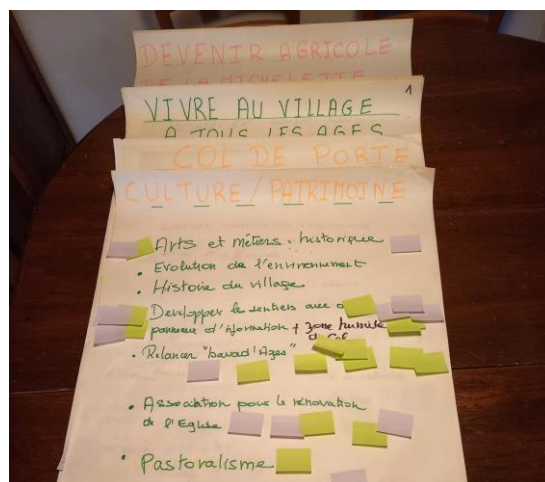 DEVENIR AGRICOLE
DE LA MICHELETTE
VIVRE AU VILLAGE 1
A TOUS LES AGES
COL DE PORTE
CULTURE / PATRIMOINE
Arts et métiers : historique
• Evolution de l'environnement
• Histoire du village
Developper les sentiers avec
panneau d'information + zone humide
du Col
• Relancer
• Association pour la rénovation
de l'Eglise
• Pastoralisme